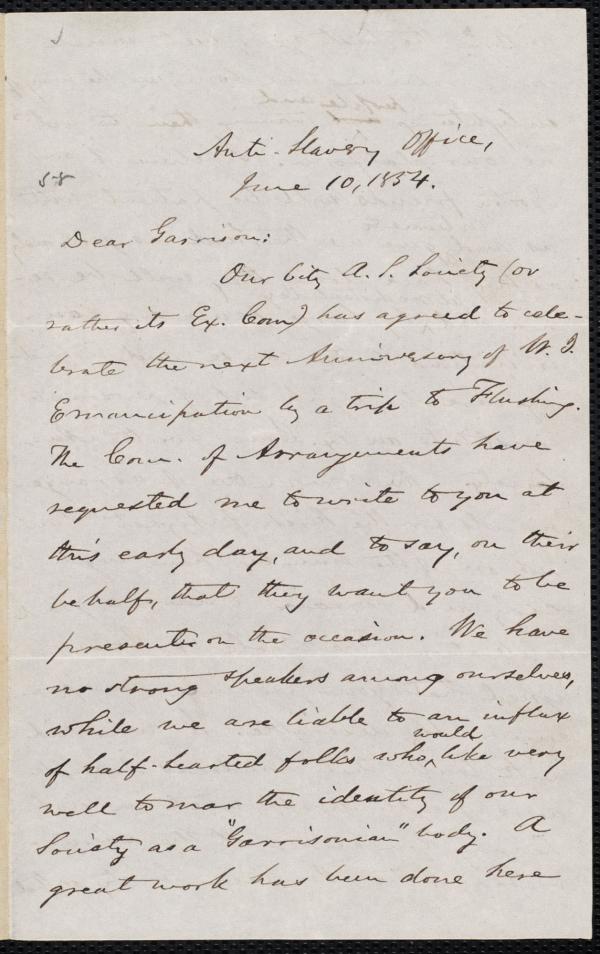 58
Anti-Slavery Office,
June 10, 1854.
Dear Garrison:
Our City A. S. Society (or
rather its Ex. Com) has agreed to cele-
brate the next Anniversary of W. I.
Emancipation by a trip to Flushing.
The Com. of Arrangements have
requested me to write to you at
this early day, and to say, on their
behalf, that they want you to be
present on the occasion. We have
no strong speakers among ourselves,
while we are liable to an influx
of half-hearted folks who would like very
well to mar the identity of our
Society as a "Garrisonian" body. A
great work has been done here